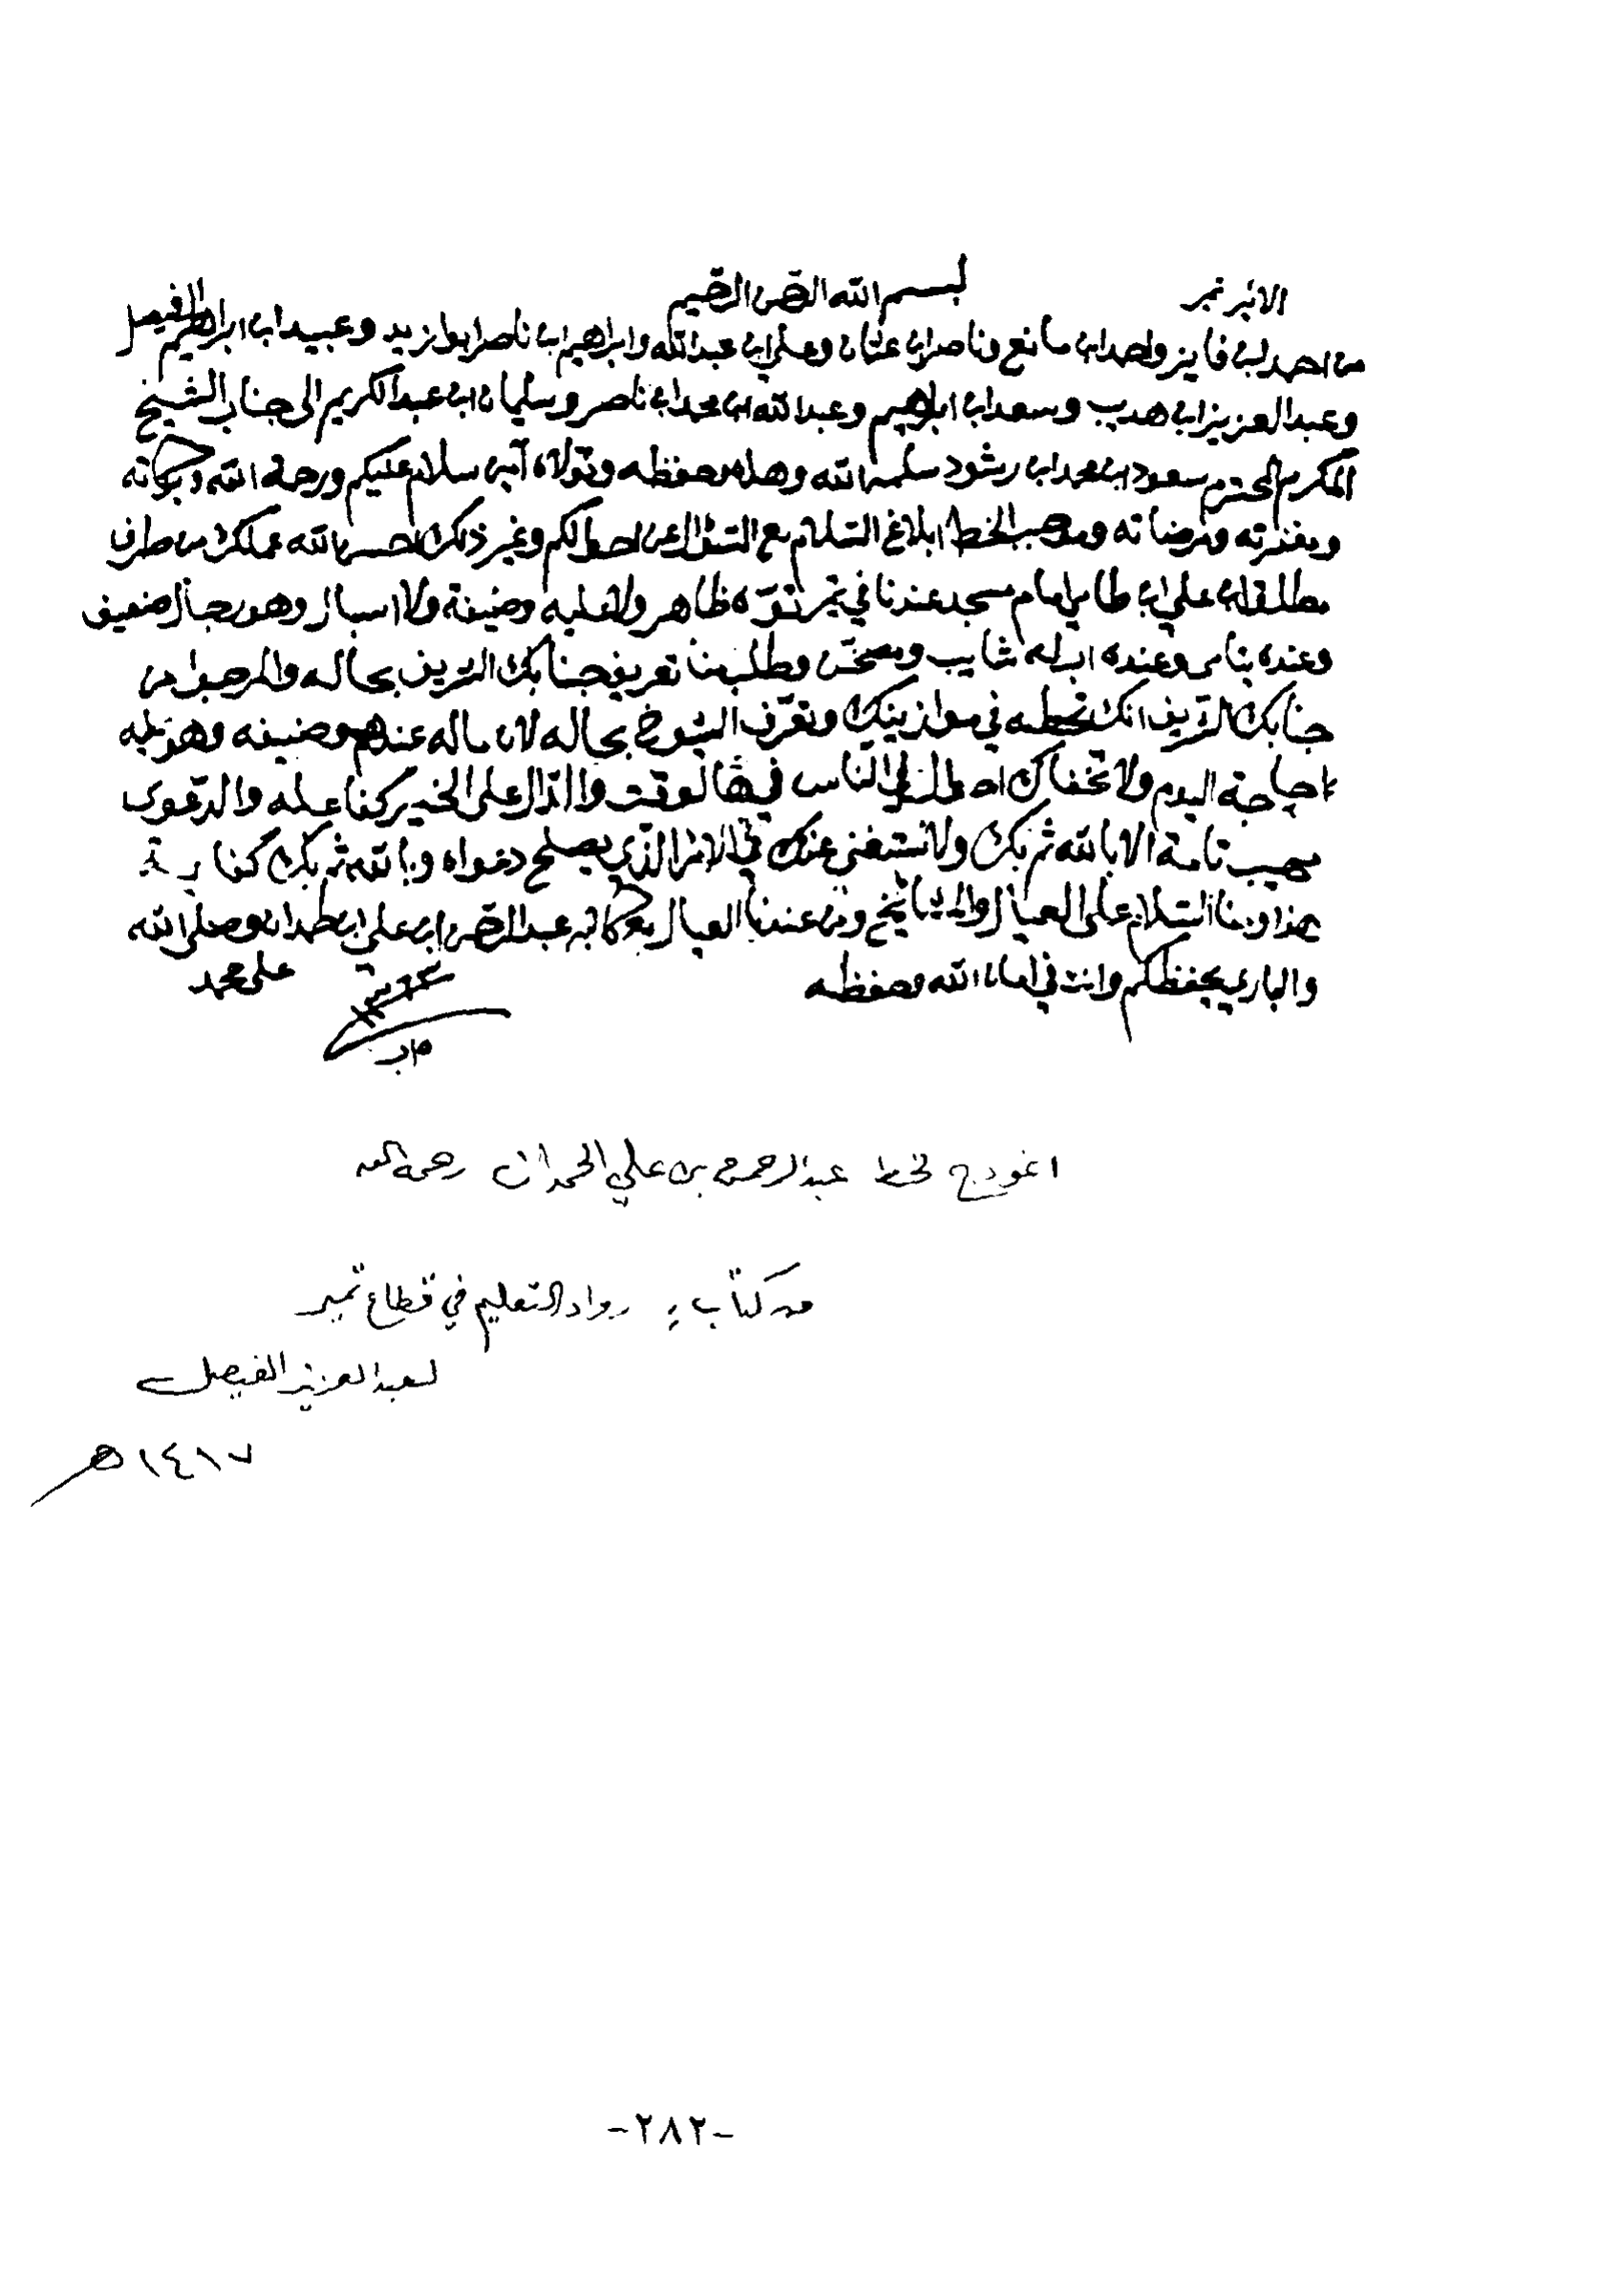 بسم الله الرحمن الرحيم
من احمد ابن فايز واحمد ابن مانع وناصر ابن عثمان وعلي ابن عبدالله وابراهيم ابن ناصر ابوزيد وعبيد ابن ابراهيم الفيصل
وعبدالعزيز ابن هديب وسعد ابن ابراهيم وعبدالله ابن محمد ابن ناصر وسليمان ابن عبدالكريم الى جناب الشيخ
المكرم المحترم سعود ابن محمد ابن رشود سلمه الله وهداه وحفظه وتولاه آمين سلام عليكم ورحمة الله وبركاته
ومغفرته ومرضاته وموجب الخط ابلاغ السلام مع السئوال عن احوالكم وغير ذلك احسن الله عملك من طرف
مطلق ابن علي ابن امام مسجد عندنا في تمير ظاهر ولا عليه وضيفة ولا اسبال وهو رجال ضعيف
وعنده وعنده ابو له شايب وطلب منا تعريف جنابك الشريف بحاله والمرجوا من
جنابك الشريف انك تحطه في موازينك وتعرف الشيوخ بحاله لان ماله عندهم وضيفه وهو به
حاجة اليوم ولا تخفاك احوال الناس في هالوقت والدال على الخير كفاعله والدعوى
الا بالله ثم بك ولا نستغني عنك في الامر الذي يصلح دعواه وبالله ثم بك كفاية
هذا ومنا السلام على العيال والمشايخ ومن عندنا العيال وكاتبه عبدالرحمن ابن علي ابن حمدان وصلى الله
والباري يحفظكم وانت في امان الله وحفظه
على محمد
انموذج لخط عبدالرحمن بن علي الحمدان رحمه الله
من كتاب: رواد التعليم في قطاع تمير
لعبدالعزيز الفيصل
١٤١٧هـ
-٢٨٢-